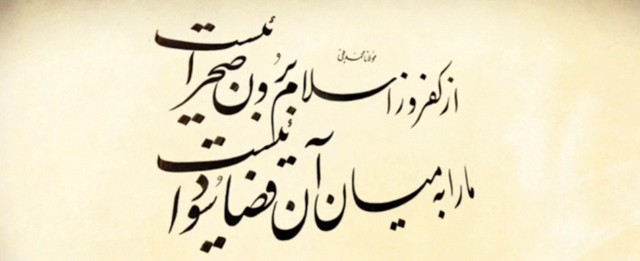 مولانا محمد بلخی
از کفر و ز اسلام برون صحرائیست
ما را به میان آن فضا سودائیست